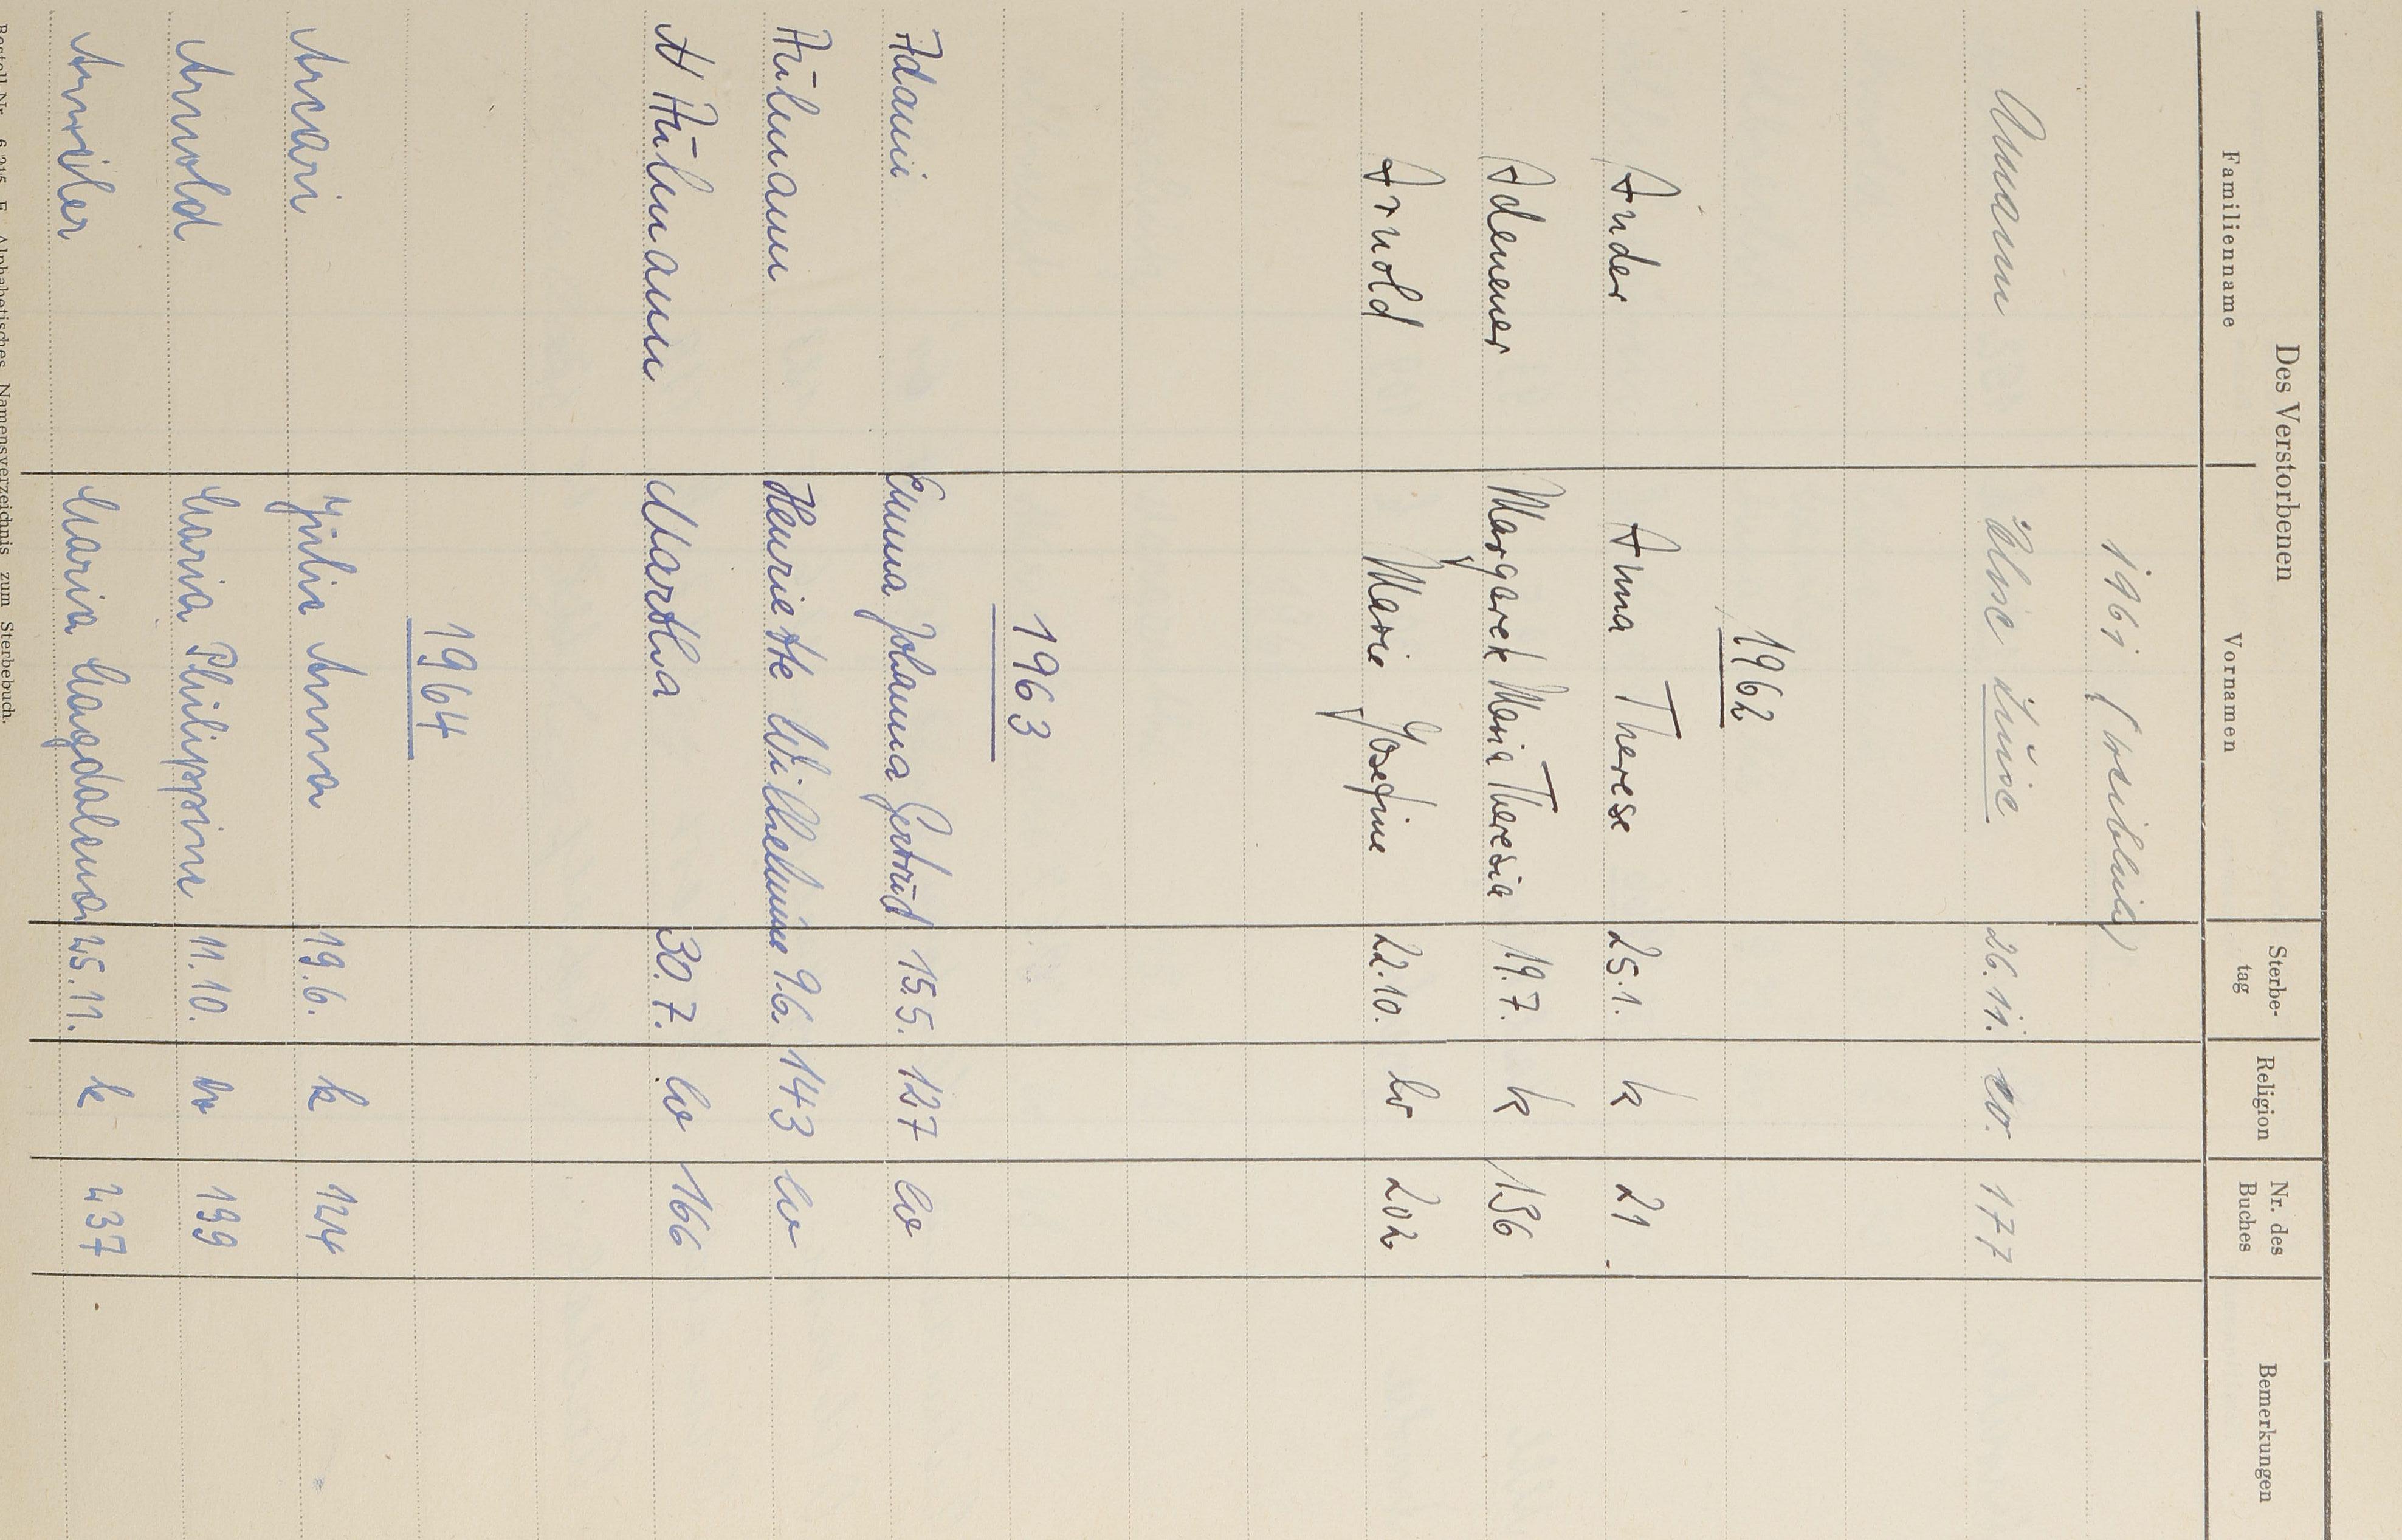 Des Verstorbenen
Familienname Vornamen Sterbe- Religion Nr. des Bemerkungen
tag Buches
1961
Amann Else Luise 26.11. ev. 177
1962
Ander Anna Therese 25.1. k 21
Adenener Margarete Maria Theresia 19.7. k 156
Arnold Marie Josefine 22.10. ev 202
1963
Adami Emma Johanna Gertrud 15.5. 127 ev
Ahlmann Henriette Wilhelmine 9.6. 143 ev
Ahlmann Martha 30.7. ev 166
1964
Arcari Julie Anna 19.6. k 124
Arnold Maria Philippine 11.10. ev 199
Anweiler Maria Magdalena 25.11. k 237
Bestell-Nr. E Alphabetisches Namensverzeichnis zum Sterbebuch.